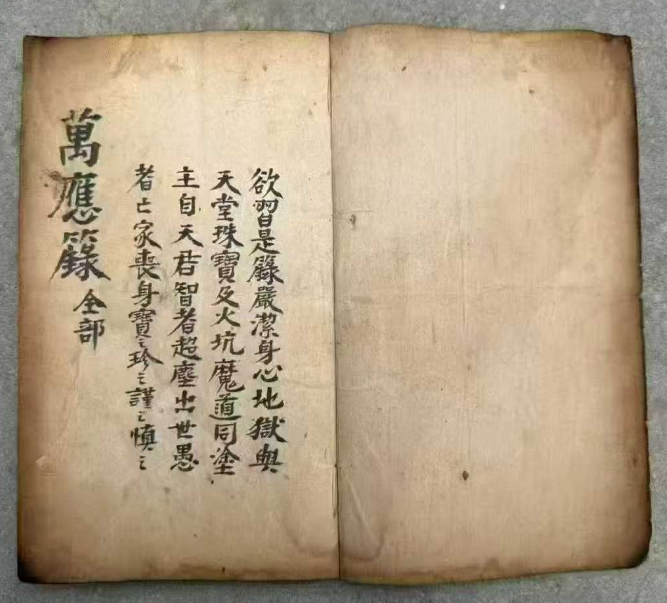 欲習是籙嚴潔身心地獄與
天堂珠寶及火坑魔道同塗
主自天君智者超塵出世愚
者亡家喪身寶之珍之謹之慎之
萬應籙 全部